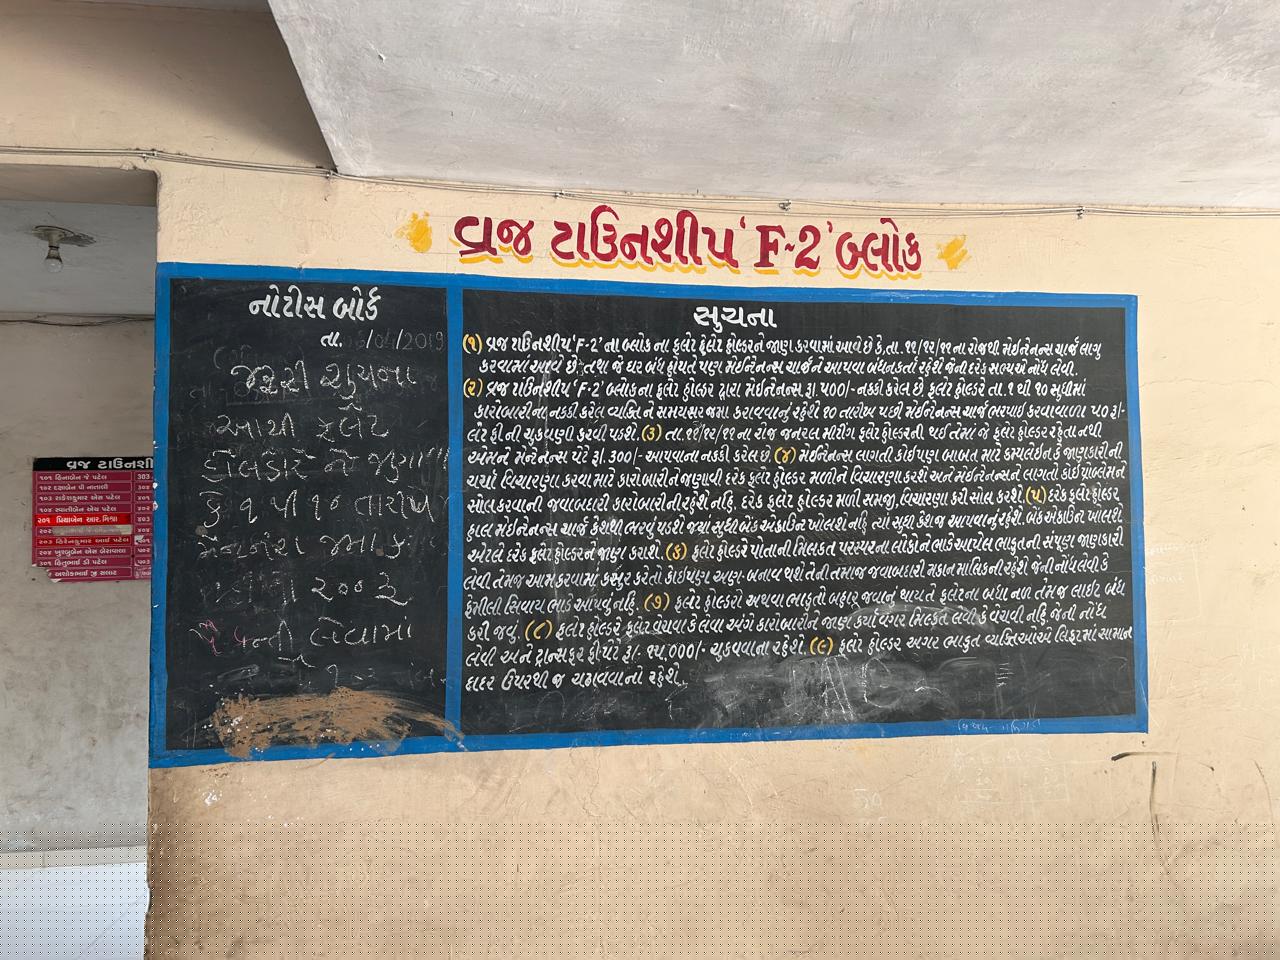 વ્રજ ટાઉનશીપ 'F-2' બ્લોક
નોટીસ બોર્ડ
તા. /04/2019
જરૂરી સુચના
આથી ફ્લેટ
હોલ્ડરો ને જણા
કે ૧ થી ૧૦ તારીખ
જમા
૨૦૦ રૂ
લેવામાં
સુચના
(૧) વ્રજ ટાઉનશીપ 'F-2' ના બ્લોક ના ફ્લેટ ફ્લેટ હોલ્ડરને જાણ કરવામાં આવે છે કે, તા. ૧૧/૧૨/૧૧ ના રોજથી મેઈનેનન્સ ચાર્જ લાગુ
કરવામાં આવે છે. તથા જે ઘર બંધ હોયતે પણ મેઈનેનન્સ ચાર્જને આપવા બંધનકર્તા રહેશે જેની દરેક સભ્યએ નોંધ લેવી.
(૨) વ્રજ ટાઉનશીપ 'F-2' બ્લોકના ફ્લેટ હોલ્ડર દ્વારા મેઈનેનન્સ રૂા. ૫૦૦/- નક્કી કરેલ છે. ફ્લેટ હોલ્ડરે તા. ૧ થી ૧૦ સુધીમાં
કારોબારીના નક્કી કરેલ વ્યક્તિ ને સમયસર જમા કરાવવાનું રહેશે ૧૦ તારીખ પછી મેઈનેનન્સ ચાર્જ ભરવાઈ કરવાવાળા ૫૦ રૂા-
લેટ ફી ની ચુકવણી કરવી પડશે. (૩) તા. ૧૧/૧૨/૧૧ ના રોજ જનરલ મીટીંગ ફ્લેટ હોલ્ડરની થઈ તેમાં જે ફ્લેટ હોલ્ડર રહેતા નથી
એમને મેનેનન્સ પેટે રૂા. ૩૦૦/- આપવાના નક્કી કરેલ છે. (૪) મેઈનેનન્સ લાગતી કોઈપણ બાબત માટે કમ્પલેઈન કે જાણકારીની
ચર્ચા વિચારણા કરવા માટે કારોબારીને જણાવી દરેક ફ્લેટ હોલ્ડર મળીને વિચારણા કરશે અને મેઈનેનન્સને લાગતો કોઈ પ્રોબ્લેમને
સોલ કરવાની જવાબદારી કારોબારીની રહેશે નહિ. દરેક ફ્લેટ હોલ્ડર મળી સમજી, વિચારણા કરી સોલ કરશે. (૫) દરેક ફ્લેટ હોલ્ડર
હાલ મેઈનેનન્સ ચાર્જ કેશથી ભરવું પડશે જ્યાં સુધી બેંક એકાઉન્ટ ખોલશે નહિ ત્યાં સુધી કેશ જ આપવાનું રહેશે. બેંક એકાઉન્ટ ખોલશે
એટલે દરેક ફ્લેટ હોલ્ડરને જાણ કરાશે. (૬) ફ્લેટ હોલ્ડરે પોતાની મિલકત પરસ્પરના લોકોને ભાડે આપેલ ભાડુતની સંપૂર્ણ જાણકારી
લેવી તેમજ આમ કરવામાં કસુર કરે તો કોઈપણ અણ બનાવ થશે તેની તમામ જવાબદારી મકાન માલિકની રહેશે જેની નોંધ લેવી કે
ફેમીલી સિવાય ભાડે આપવું નહિ. (૭) ફ્લેટ હોલ્ડરો અથવા ભાડુતો બહાર જવાનું થાય તે ફ્લેટના બધા નળ તેમજ લાઈટ બંધ
કરી જવું. (૮) ફ્લેટ હોલ્ડરે ફ્લેટ વેચવા કે લેવા અંગે કારોબારીને જાણ કર્યા વગર મિલ્કત લેવી કે વેચાવી નહિ જેની નોંધ
લેવી અને ટ્રાન્સફર ફી પેટે રૂા. ૧૫,૦૦૦/- ચુકવવાના રહેશે. (૯) ફ્લેટ હોલ્ડર અગર ભાડુત વ્યક્તિઓએ લિફ્ટમાં સામાન
દાદર ઉપરથી જ ચઢાવવાનો રહેશે.
વ્રજ ટાઉનશી
૧૦૧ હિનાબેન જે પટેલ 303
૧૦૨ દક્ષાબેન પી નાતાલી
૧૦૩ રાકેશકુમાર એસ પટેલ
૧૦૪ સ્વાતીબેન એચ પટેલ
૨૦૧ પ્રિયાબેન આર. મિશ્રા ૪૦૩
૨૦૨
૨૦૩ હિરેનકુમાર આઈ પટેલ
૨૦૪ ખુશ્બુબેન એસ બેરાવાલા ૫૦૨
૩૦૧ હિતુભાઈ ડી પટેલ ૫૦૩
અશોકભાઈ જી સલાટ